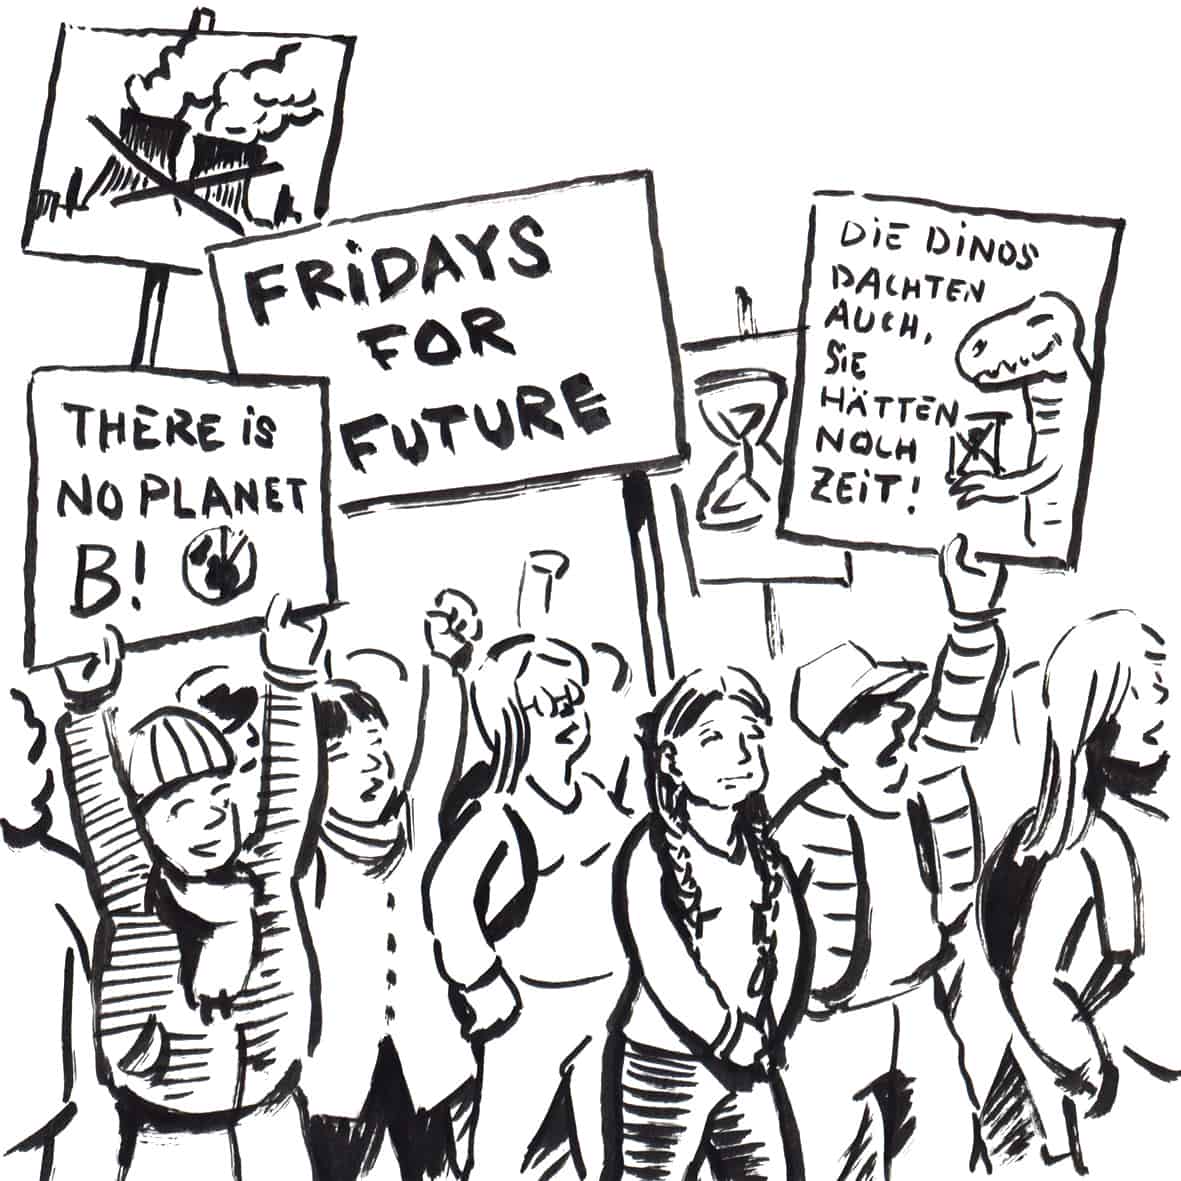 FRiDAYS
FOR
FUTURE
THERE iS
NO PLANET
B!
DiE DiNOS
DACHTEN
AUCH,
SiE
HÄTTEN
NOCH
ZEiT!